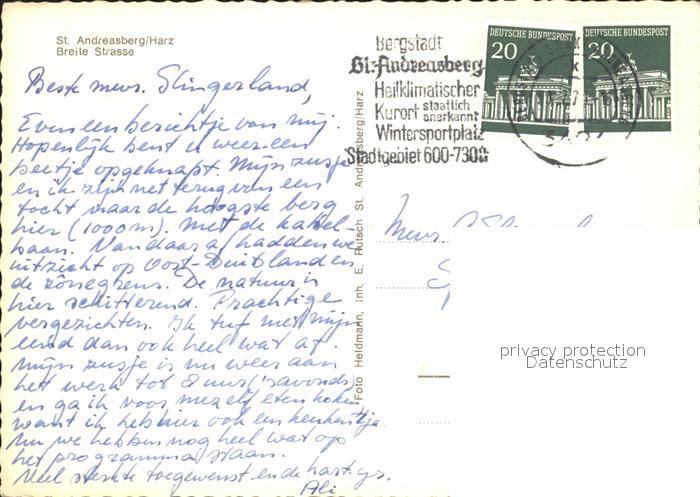 St. Andreasberg/Harz
Breite Strasse
Beste mevr. Slingerland,
Even een berichtje van mij.
Hopenlijk bent u weer een
beetje opgeknapt. Mijn zusje
en ik zijn net terug van een
tocht naar de hoogste berg
hier (1000m). Met de kabel-
baan. Vandaar af hadden we
uitzicht op Oost-Duitsland en
de zônegrens. De natuur is
hier schitterend. Prachtige
vergezichten. Ik tuf met mijn
eend dan ook heel wat af.
Mijn zusje is nu weer aan
het werk tot 8 uur ('s avonds)
en ga ik voor mezelf eten koken
want ik heb hier ook een keukentje.
Nu we hebben nog heel wat op
het programma staan.
Veel sterkte toegewenst en de hart. gr.
Ali
Foto Heldmann, Inh. E. Rutsch St. Andreasberg/Harz
Bergstadt
St. Andreasberg
Heilklimatischer
Kurort staatlich anerkannt
Wintersportplatz
Stadtgebiet 600-730m
DEUTSCHE BUNDESPOST
20
DEUTSCHE BUNDESPOST
20
Mevr.
privacy protection
Datenschutz